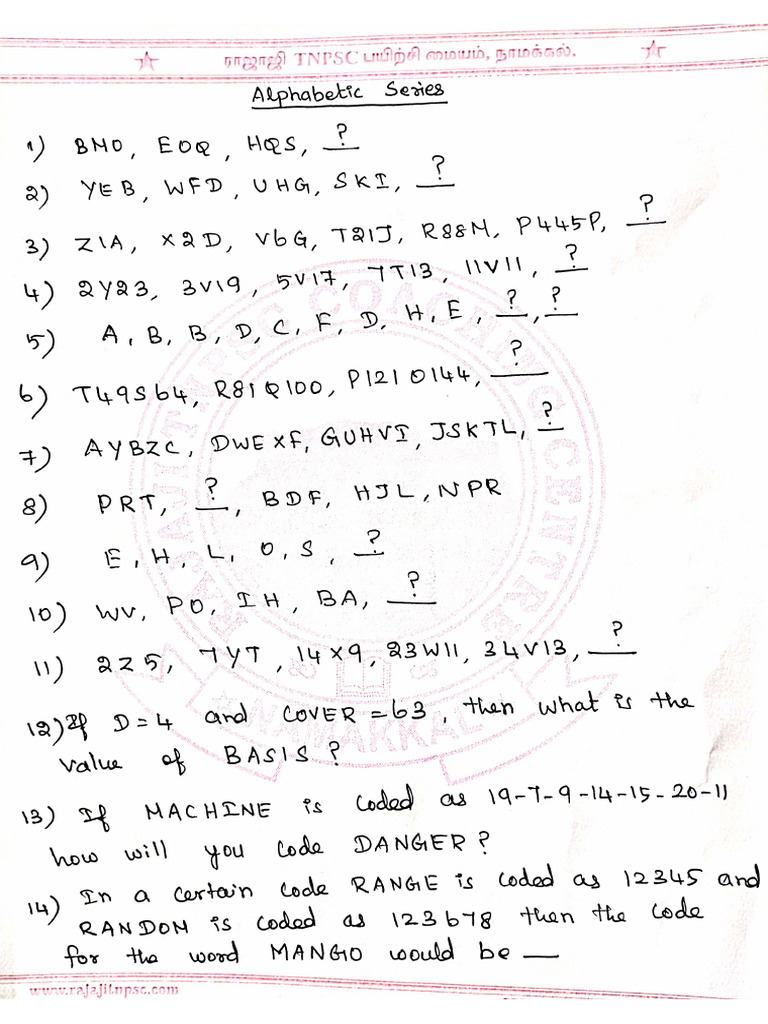 ராஜாஜி TNPSC பயிற்சி மையம், நாமக்கல்.
Alphabetic Series
1) BMO, EOQ, HQS, ?
2) YEB, WFD, UHG, SKI, ?
3) Z1A, X2D, V6G, T21J, R88M, P445P, ?
4) 2Y23, 3V19, 5V17, 7T13, 11V11, ?
5) A, B, B, D, C, F, D, H, E, ?, ?
6) T49S64, R81Q100, P121O144, ?
7) AYBZC, DWEXF, GUHVI, JSKTL, ?
8) PRT, ?, BDF, HJL, NPR
9) E, H, L, O, S, ?
10) WV, PO, IH, BA, ?
11) 2Z5, 7Y7, 14X9, 23W11, 34V13, ?
12) If D=4 and COVER=63, then what is the
value of BASIS?
13) If MACHINE is coded as 19-7-9-14-15-20-11
how will you code DANGER?
14) In a certain code RANGE is coded as 12345 and
RANDOM is coded as 123678 then the code
for the word MANGO would be __
RAJAJI TNPSC COACHING CENTRE
NAMAKKAL
www.rajajitnpsc.com